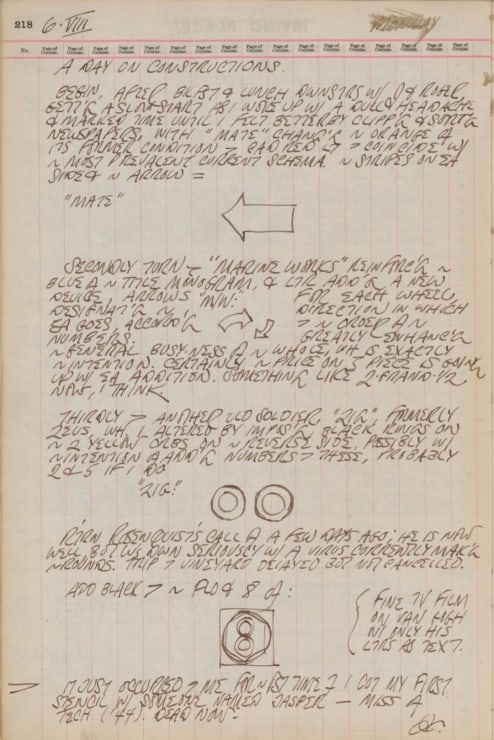 218 6·VIII
No. Page of Column. Page of Column. Page of Column. Page of Column. Page of Column. Page of Column. Page of Column. Page of Column. Page of Column. Page of Column. Page of Column. Page of Column. Page of Column. Page of Column.
A DAY ON CONSTRUCTIONS.
BEGIN, AFTER & LUNCH DWNSTRS W/ D & ROBT.
A SLOW START AS I WOKE UP W/ A DULL HEADACHE
& MARKED TIME UNTIL I FELT BETTER BY CLIPP'G & SORT'G
NEWSPAPERS, WITH "MATE" CHANG'G ~ ORANGE OF
ITS FORMER CONDITION > CAD RED COINCIDE W/
~ MOST PREVALENT CURRENT SCHEMA. ~ STRIPES ON EA
SIDE OF ~ ARROW =
"MATE"
SECONDLY TURN "MARINE WORKS" REINFORC'G ~
BLUE ~ TITLE MONOGRAM, & LTR ADD'G A NEW
DEVICE, ARROWS "M/W:" FOR EACH WHEEL,
DESIGNAT'G ~ DIRECTION IN WHICH
EA GOES ACCORD'G > ~ ORDER ~
NUMBERS. GREATLY ENHANC'G
~ GENERAL BUSY-NESS ~ WHOLE, WH IS EXACTLY
~ INTENTION. CERTAINLY ~ PRICE ON PIECE IS GOING
UP W/ EA ADDITION. SOMETHING LIKE 2-GRAND-1/2
NOW, I THINK.
THIRDLY > ANOTHER OLD SOLDIER, "ZIG", FORMERLY
ZEUS, WH I ALTERED BY IMPOS'G BLACK RINGS ON
~ 2 YELLOW ORBS ON ~ REVERSE SIDE, POSSIBLY W/
~ INTENTION ADD'G NUMBERS > THESE, PROBABLY
2 & 5 IF I DO
"ZIG:"
RTRN ROSENQUIST'S CALL A FEW DAYS AGO; HE IS NOW
WELL BUT WAS DOWN SERIOUSLY W/ A VIRUS CURRENTLY MAK'G
~ ROUNDS. TRIP > VINEYARD DELAYED BUT NOT CANCELLED.
ADD BLACK > ~ 8 OF:
8
FINE TV FILM
ON VAN GOGH
W/ ONLY HIS
LTRS AS TEXT.
IT JUST OCCURRED > ME FOR ~ 1ST TIME I GOT MY FIRST
STENCIL W/ SOMEONE NAMED JASPER — MISS
TECH ('44). DEAD NOW.